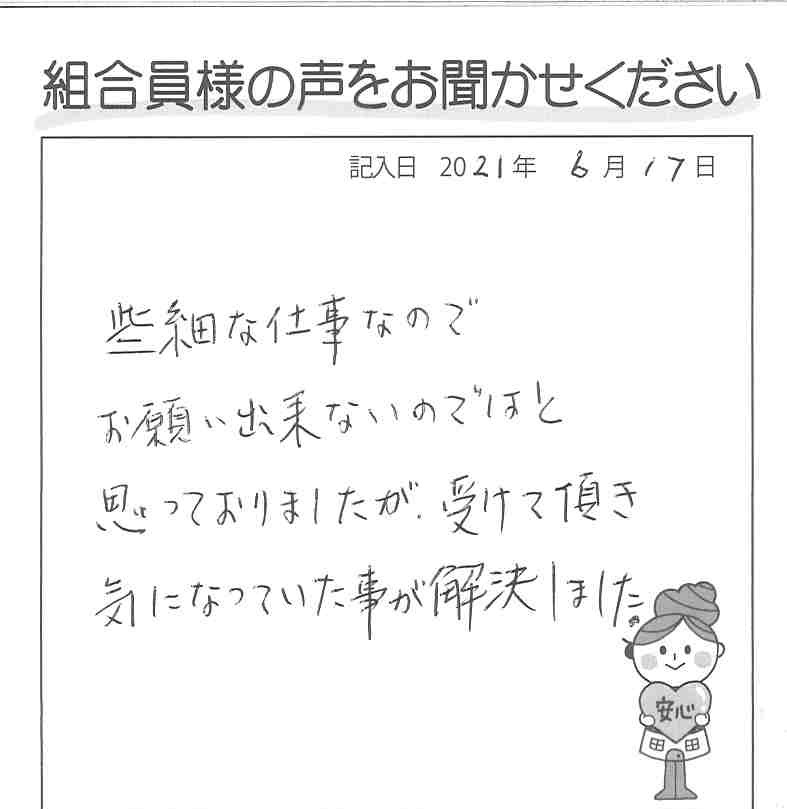 組合員様の声をお聞かせください
記入日 2021年 6月17日
些細な仕事なので
お願い出来ないのではと
思っておりましたが、受けて頂き
気になっていた事が解決しました。
安心